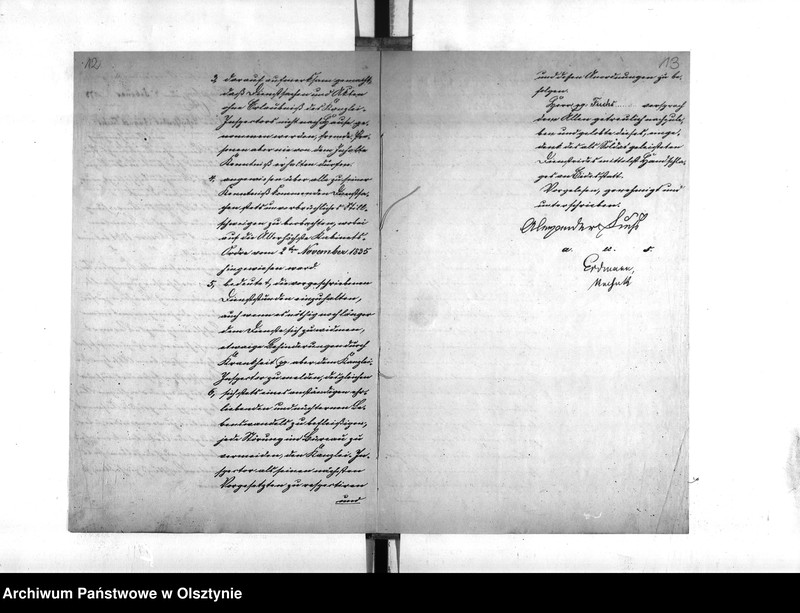 12
3, darauf aufmerksam gemacht,
daß Dienstsachen und Akten
ohne Erlaubniß des Kanzlei-
Inspectors nicht nach Hause ge-
nommen werden, fremde Per-
sonen aber nie von dem Inhalte
Kenntniß erhalten dürfen.
4, angewiesen über alle zu seiner
Kenntniß kommenden Dienstsa-
chen, stets unverbrüchliches Still-
schweigen zu beobachten, wobei
auf die Allerhöchste Kabinets-
Ordre vom 2ten November 1835
hingewiesen ward
5, bedeutet, die vorgeschriebenen
Dienststunden einzuhalten,
auch wenn es nöthig noch länger
dem Dienste sich zu widmen,
etwaige Behinderungen durch
Krankheit pp aber dem Kanzlei-
Inspector zu melden, desgleichen
6, sich stets eines anständigen ehr-
liebenden und nüchternen Le-
benswandels zu befleißigen,
jede Störung im Büreau zu
vermeiden, den Kanzlei-In-
spector als seinen nächsten
Vorgesetzten zu respectiren
und
13
und dessen Anordnungen zu be-
folgen.
Herr pp. Fuchs versprach
dem Allen getreulich nachzule-
ben und gelobte dieses, einge-
denk des als Soldat geleisteten
Diensteides mittelst Handschla-
ges an Eidesstatt.
Vorgelesen, genehmigt und
unterschrieben.
Alexander Fuchs
a. u. s.
Erdmann,
Archiwum Państwowe w Olsztynie